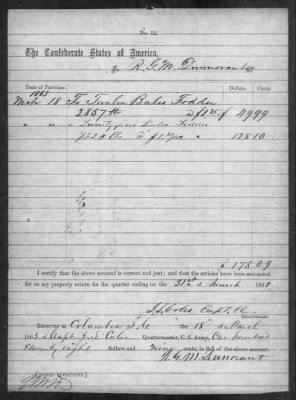 No. 12.
The Confederate States of America,
To R. G. M. Dunnovant
Date of Purchase. Dollars. Cents.
1863
Mch 18 To Twelve Bales Fodder
2857 lb 49 99
" " " Bales Fodder
128 10
$ 178 09
I certify that the above account is correct and just; and that the articles have been accounted
for on my property return for the quarter ending on the 31st of March 1863
J. J. Coles Capt. &
Quartermaster.
Received at Columbia S. C. the 18 of March
1863, of Capt. J. J. Coles Quartermaster, C. S. Army, One hundred
Seventy eight dollars and Nine cents, in full of the above account.
R. G. M. Dunovant
[SIGNED DUPLICATES.]